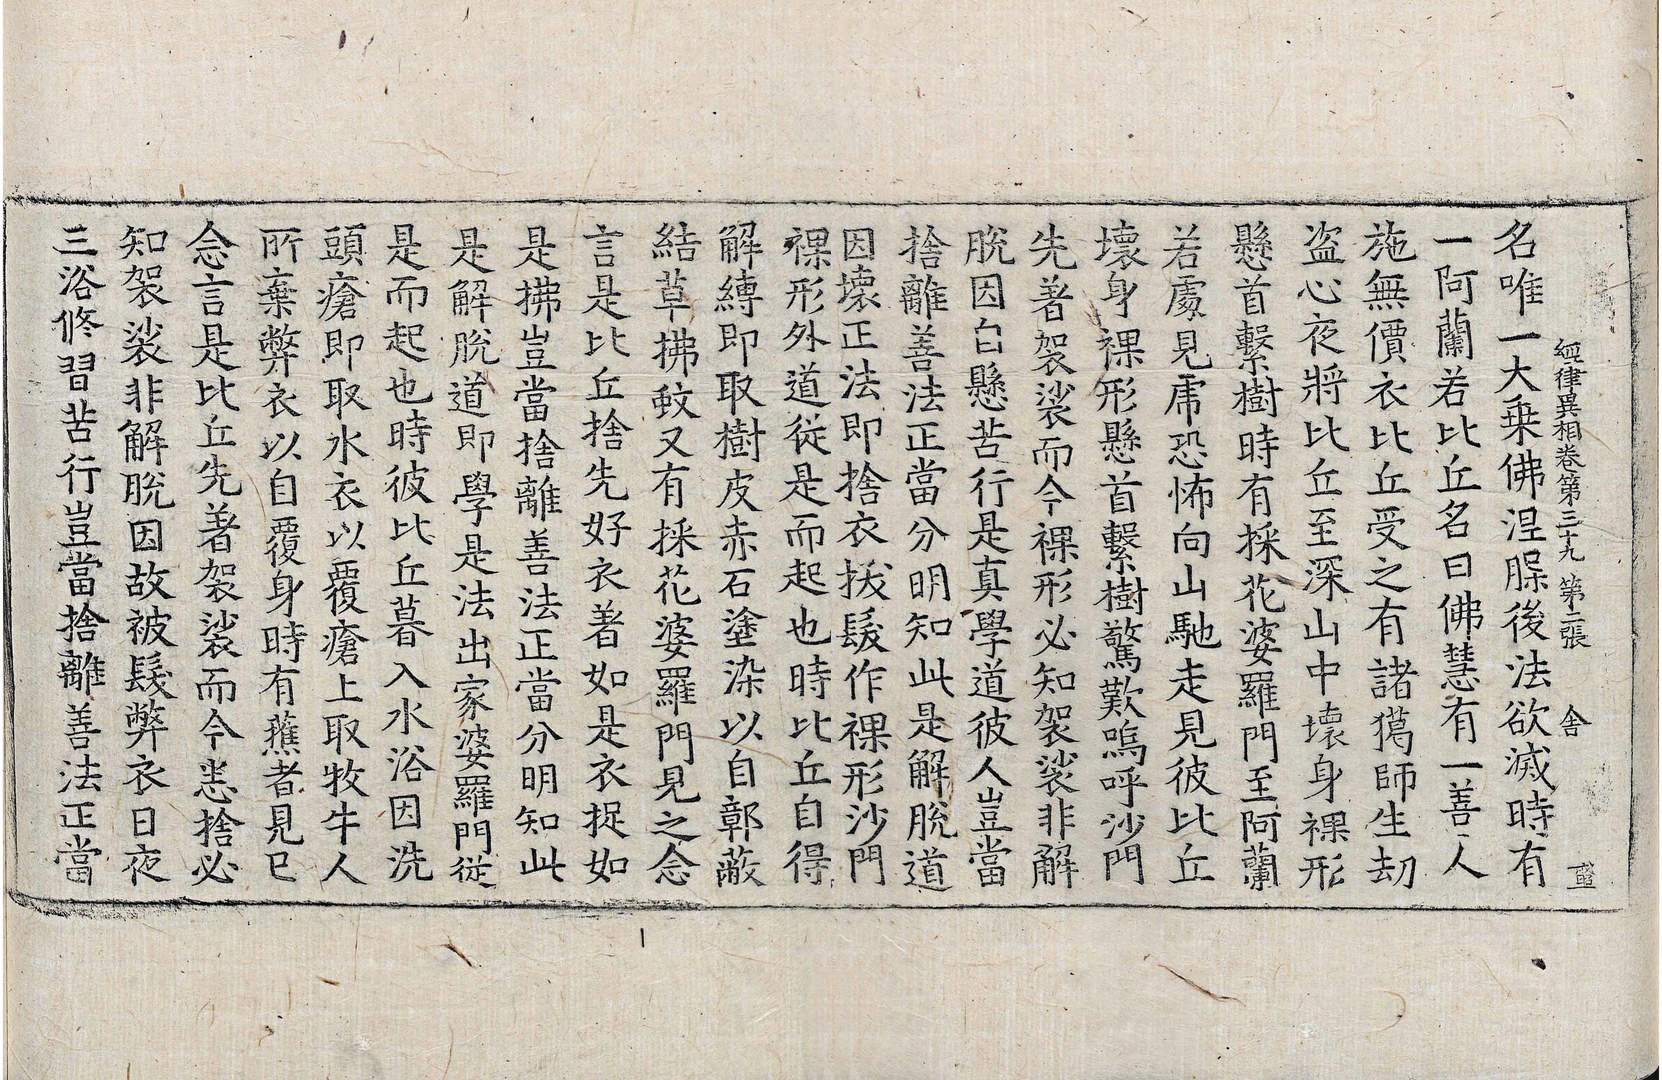 經律異相卷第三十九 第二張 舍
名唯一大乗佛涅腂後法欲滅時有
一阿蘭若比丘名曰佛慧有一善人
施無價衣比丘受之有諸獦師生劫
盗心夜將比丘至深山中壊身裸形
懸首繫樹時有採花婆羅門至阿蘭
若處見虎恐怖向山馳走見彼比丘
壊身裸形懸首繫樹驚歎嗚呼沙門
先著袈裟而今裸形必知袈裟非解
脫因自懸苦行是真學道彼人豈當
捨離善法正當分明知此是解脫道
因壊正法即捨衣拔髮作裸形沙門
裸形外道從是而起也時比丘自得
解縛即取樹皮赤石塗染以自鄣蔽
結草拂蚊又有採花婆羅門見之念
言是比丘捨先好衣著如是衣捉如
是拂豈當捨離善法正當分明知此
是解脫道即學是法出家婆羅門從
是而起也時彼比丘暮入水浴因洗
頭瘡即取水衣以覆瘡上取牧牛人
所棄弊衣以自覆身時有蕉者見已
念言是比丘先著袈裟而今悉捨必
知袈裟非解脫因故被髮弊衣日夜
三浴修習苦行豈當捨離善法正當